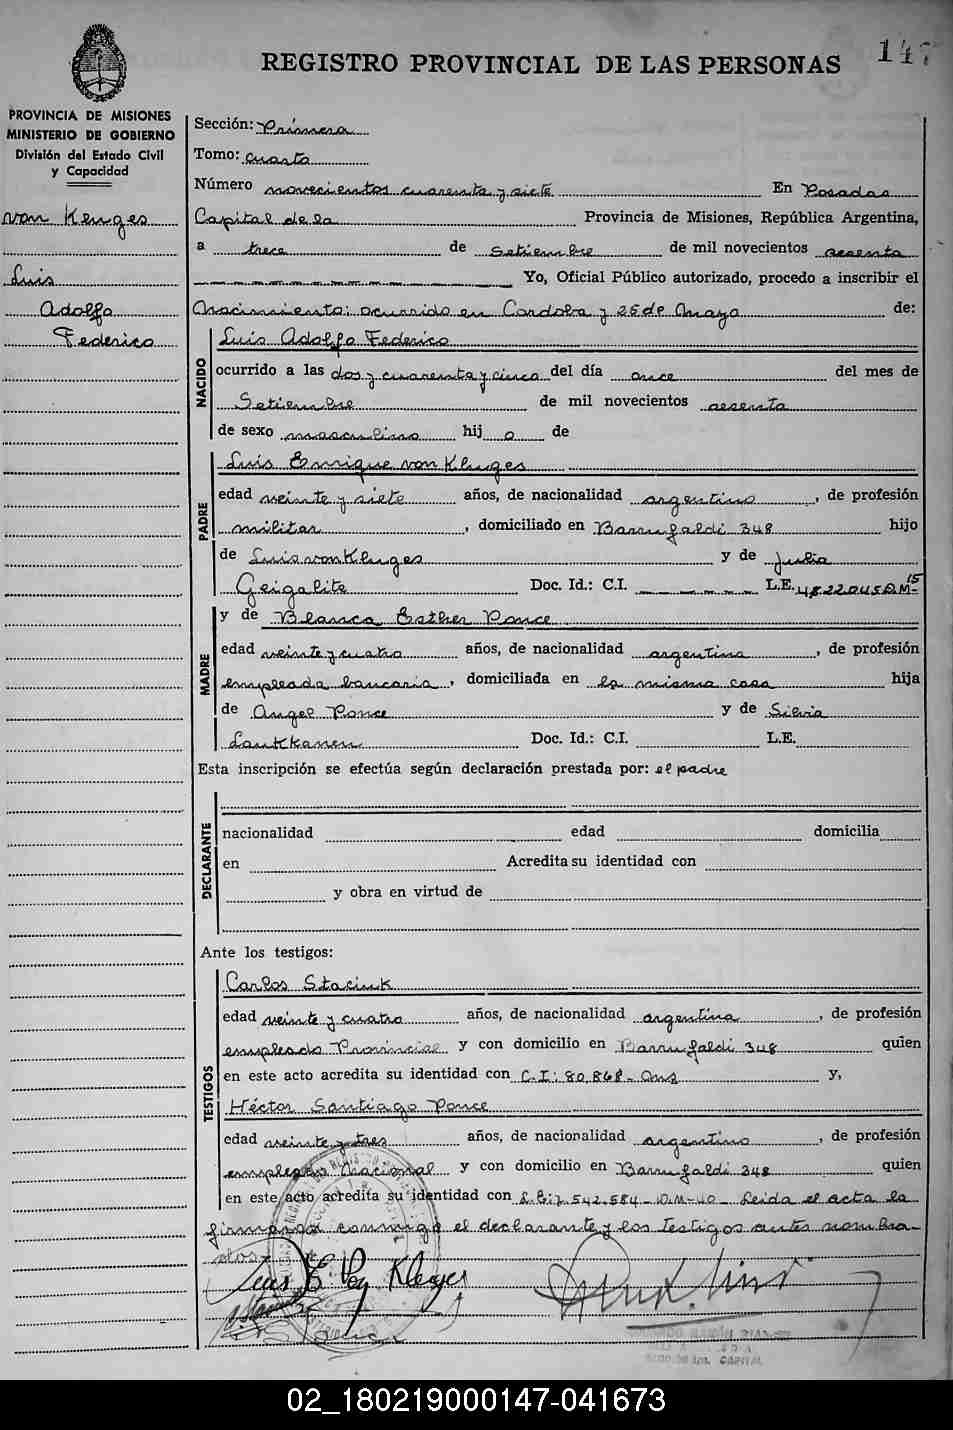 147
REGISTRO PROVINCIAL DE LAS PERSONAS
PROVINCIA DE MISIONES
MINISTERIO DE GOBIERNO
División del Estado Civil
y Capacidad
von Kluges
Luis
Adolfo
Federico
Sección: Primera
Tomo: cuarto
Número novecientos cuarenta y siete En Posadas
Capital de la Provincia de Misiones, República Argentina,
a trece de Setiembre de mil novecientos sesenta
Yo, Oficial Público autorizado, procedo a inscribir el
Nacimiento: ocurrido en Cordoba y 25 de Mayo de:
NACIDO
Luis Adolfo Federico
ocurrido a las dos y cuarenta y cinco del día once del mes de
Setiembre de mil novecientos sesenta
de sexo masculino hij o de
PADRE
Luis Enrique von Kluges
edad veinte y siete años, de nacionalidad argentino, de profesión
militar, domiciliado en Barrufaldi 348 hijo
de Luis von Kluges y de Julia
Geigalite Doc. Id.: C.I. L.E. 4822045 D.M-15
MADRE
y de Blanca Esther Ponce
edad veinte y cuatro años, de nacionalidad argentina, de profesión
empleada bancaria, domiciliada en la misma casa hija
de Angel Ponce y de Silvia
Laukkanen Doc. Id.: C.I. L.E.
Esta inscripción se efectúa según declaración prestada por: el padre
DECLARANTE
nacionalidad edad domicilia
en Acredita su identidad con
y obra en virtud de
Ante los testigos:
TESTIGOS
Carlos Staciuk
edad veinte y cuatro años, de nacionalidad argentina, de profesión
empleado Provincial y con domicilio en Barrufaldi 348 quien
en este acto acredita su identidad con C.I: 80.868- y,
Héctor Santiago Ponce
edad veinte y tres años, de nacionalidad argentino, de profesión
empleado Nacional y con domicilio en Barrufaldi 348 quien
en este acto acredita su identidad con 7.542.584-D.M-40- Leida el acta la
firman conmigo el declarante y los testigos antes nombra-
dos-
Luis E Von Kluges
CAPITAL
02_180219000147-041673